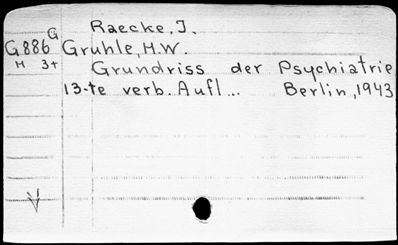 Raecke, J.
G
G886 Gruhle, H.W.
M 3+ Grundriss der Psychiatrie
13-te verb. Aufl... Berlin, 1943
V